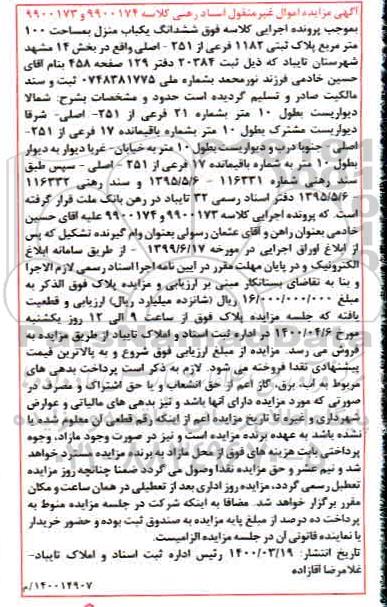 آگهی مزایده اموال غیرمنقول اسناد رهنی کلاسه ۹۹۰۰۱۷۴ و ۹۹۰۰۱۷۳
بموجب پرونده اجرایی کلاسه فوق ششدانگ یکباب منزل بمساحت ۱۰۰
متر مربع پلاک ثبتی ۱۱۸۲ فرعی از ۲۵۱ - اصلی واقع در بخش ۱۴ مشهد
شهرستان تایباد که ذیل ثبت ۲۰۳۸۴ دفتر ۱۲۹ صفحه ۴۵۸ بنام آقای
حسین خادمی فرزند نورمحمد بشماره ملی ۰۷۴۸۳۸۱۷۷۵ ثبت و سند
مالکیت صادر و تسلیم گردیده است حدود و مشخصات بشرح: شمالا
دیواریست بطول ۱۰ متر بشماره ۲۱ فرعی از ۲۵۱- اصلی- شرقا
دیواریست مشترک بطول ۱۰ متر بشماره باقیمانده ۱۷ فرعی از ۲۵۱-
اصلی - جنوبا درب و دیواریست بطول ۱۰ متر به خیابان- غربا دیوار به دیوار
بطول ۱۰ متر به شماره باقیمانده ۱۷ فرعی از ۲۵۱ - اصلی - سپس طبق
سند رهنی شماره ۱۱۶۳۳۱ - ۱۳۹۵/۵/۶ و سند رهنی ۱۱۶۳۳۲
- ۱۳۹۵/۵/۶ دفتر اسناد رسمی ۳۲ تایباد در رهن بانک ملت قرار گرفته
است. که پرونده اجرایی کلاسه ۹۹۰۰۱۷۳ و ۹۹۰۰۱۷۴ علیه آقای حسین
خادمی بعنوان راهن و آقای عثمان رسولی بعنوان وام گیرنده تشکیل که پس
از ابلاغ اوراق اجرایی در مورخه ۱۳۹۹/۶/۱۷ - از طریق سامانه ابلاغ
الکترونیک و در پایان مهلت مقرر در آیین نامه اجرا اسناد رسمی لازم الاجرا
و بنا به تقاضای بستانکار مبنی بر ارزیابی و مزایده پلاک فوق الذکر به
مبلغ ۱۶/۰۰۰/۰۰۰/۰۰۰ ریال (شانزده میلیارد ریال) ارزیابی و قطعیت
یافته که جلسه مزایده پلاک فوق از ساعت ۹ الی ۱۲ روز یکشنبه
مورخ ۱۴۰۰/۰۴/۶ در اداره ثبت اسناد و املاک تایباد از طریق مزایده به
فروش می رسد. مزایده از مبلغ ارزیابی فوق شروع و به بالاترین قیمت
پیشنهادی نقدا فروخته می شود. لازم به ذکر است پرداخت بدهی های
مربوط به آب، برق، گاز اعم از حق انشعاب و یا حق اشتراک و مصرف در
صورتی که مورد مزایده دارای آنها باشد و نیز بدهی های مالیاتی و عوارض
شهرداری و غیره تا تاریخ مزایده اعم از اینکه رقم قطعی آن معلوم شده یا
نشده باشد به عهده برنده مزایده است و نیز در صورت وجود مازاد، وجوه
پرداختی بابت هزینه های فوق از محل مازاد به برنده مزایده مسترد خواهد
شد و نیم عشر و حق مزایده نقدا وصول می گردد. ضمنا چنانچه روز مزایده
تعطیل رسمی گردد، مزایده روز اداری بعد از تعطیلی در همان ساعت و مکان
مقرر برگزار خواهد شد. مضافا به اینکه شرکت در جلسه مزایده منوط به
پرداخت ده درصد از مبلغ پایه مزایده به صندوق ثبت بوده و حضور خریدار
یا نماینده قانونی آن در جلسه مزایده الزامیست.
تاریخ انتشار: ۱۴۰۰/۰۳/۱۹ رئیس اداره ثبت اسناد و املاک تایباد-
غلامرضا آقازاده
۱۴۰۰۱۴۹۰۷/م